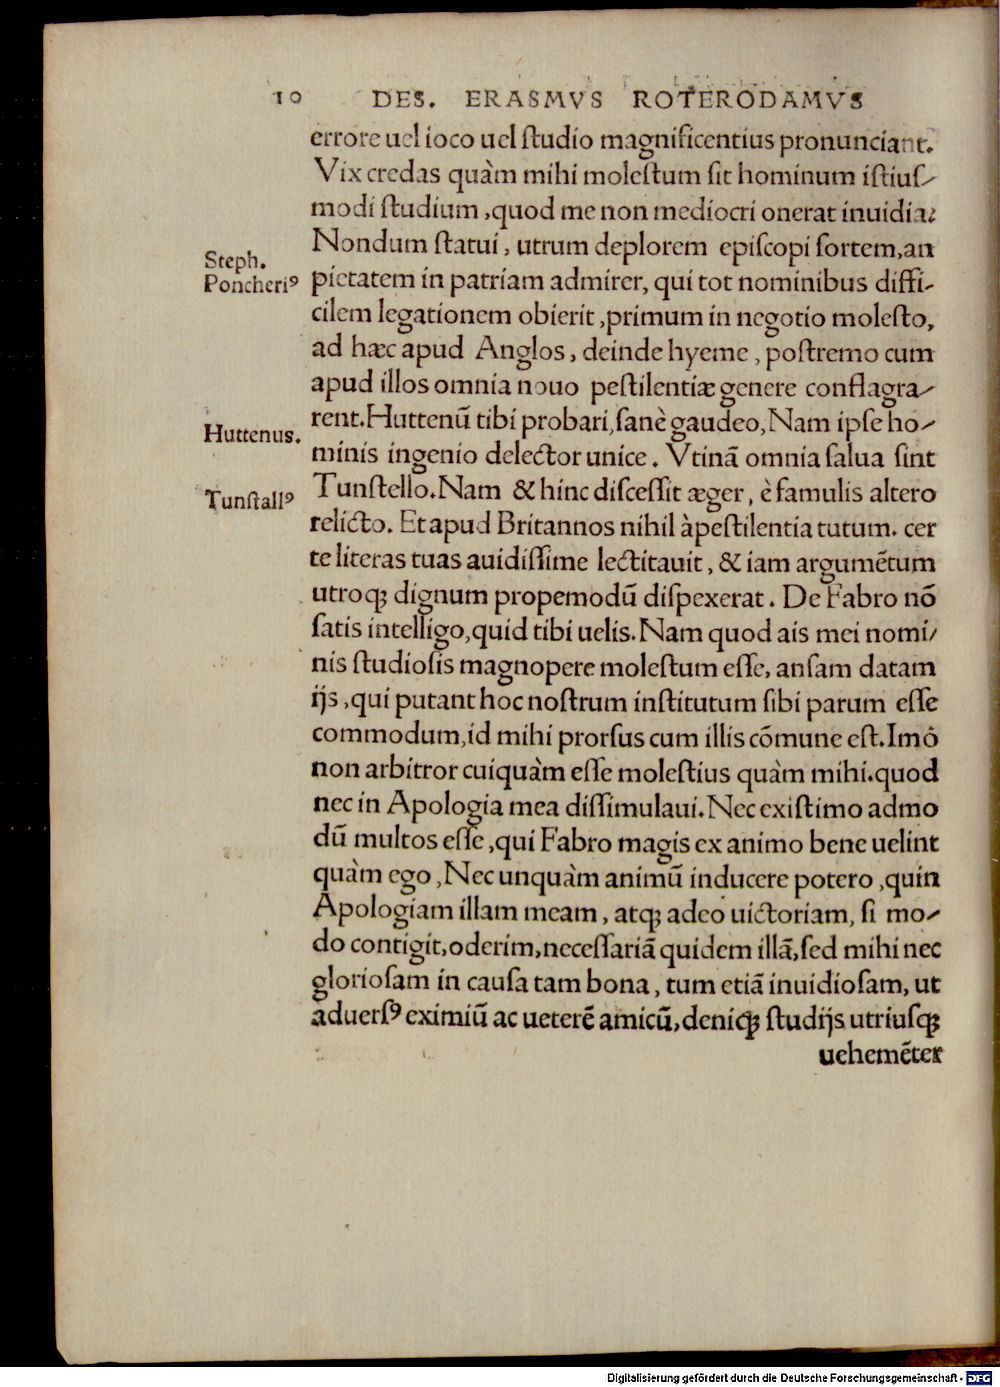 10 DES. ERASMVS ROTERODAMVS
errore uel ioco uel ſtudio magnificentius pronunciant.
Vix credas quàm mihi moleſtum ſit hominum iſtiuſ-
modi ſtudium, quod me non mediocri onerat inuidia:
Nondum ſtatui, utrum deplorem epiſcopi ſortem, an
Steph.
Poncheriꝰ
pietatem in patriam admirer, qui tot nominibus diffi-
cilem legationem obierit, primum in negotio moleſto,
ad hæc apud Anglos, deinde hyeme, poſtremo cum
apud illos omnia nouo peſtilentiæ genere conflagra-
Huttenus.
rent. Huttenū tibi probari, ſanè gaudeo, Nam ipſe ho-
minis ingenio delector unice. Vtinā omnia ſalua ſint
Tunſtallꝰ
Tunſtello. Nam & hinc diſceſſit æger, è famulis altero
relicto. Et apud Britannos nihil à peſtilentia tutum. cer
te literas tuas auidiſſime lectitauit, & iam argumētum
utroqꝫ dignum propemodū diſpexerat. De Fabro nō
ſatis intelligo, quid tibi uelis. Nam quod ais mei nomi/
nis ſtudioſis magnopere moleſtum eſſe, anſam datam
ijs, qui putant hoc noſtrum inſtitutum ſibi parum eſſe
commodum, id mihi prorſus cum illis cōmune eſt. Imò
non arbitror cuiquàm eſſe moleſtius quàm mihi. quod
nec in Apologia mea diſſimulaui. Nec exiſtimo admo
dū multos eſſe, qui Fabro magis ex animo bene uelint
quàm ego, Nec unquàm animū inducere potero, quin
Apologiam illam meam, atqꝫ adeo uictoriam, ſi mo-
do contigit, oderim, neceſſariā quidem illā, ſed mihi nec
glorioſam in cauſa tam bona, tum etiā inuidioſam, ut
aduerſꝰ eximiū ac ueterē amicū, deniqꝫ ſtudijs utriuſqꝫ
uehemēter
Digitalisierung gefördert durch die Deutsche Forschungsgemeinschaft - DFG